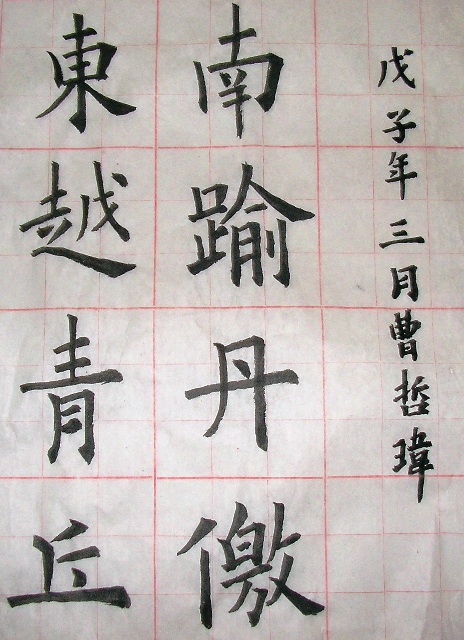 東越青丘
南踰丹儌
戊子年三月曹哲瑋